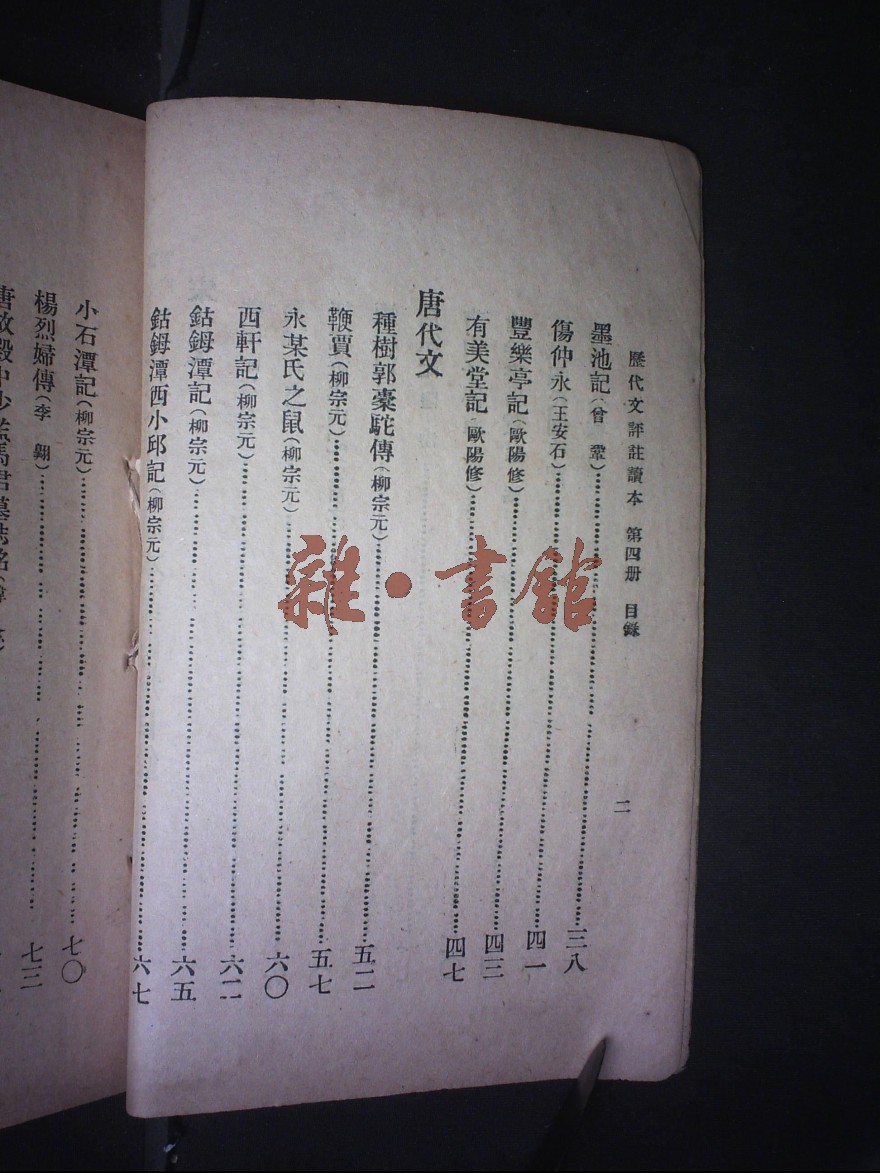 歷代文評註讀本 第四册 目錄 二
墨池記(曾 鞏)三八
傷仲永(王安石)四一
豐樂亭記(歐陽修)四三
有美堂記(歐陽修)四七
唐代文
種樹郭橐駝傳(柳宗元)五二
鞭賈(柳宗元)五七
永某氏之鼠(柳宗元)六〇
西軒記(柳宗元)六二
鈷鉧潭記(柳宗元)六五
鈷鉧潭西小邱記(柳宗元)六七
小石潭記(柳宗元)七〇
楊烈婦傳(李 翺)七三
唐故殿中少監馬君墓誌銘
雜·書館